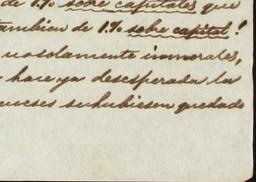 de 1% sobre capitales que
tambien de 1% sobre capital!
no solamente inmorales,
hace ya desesperada la
meses su hubiesen quedado